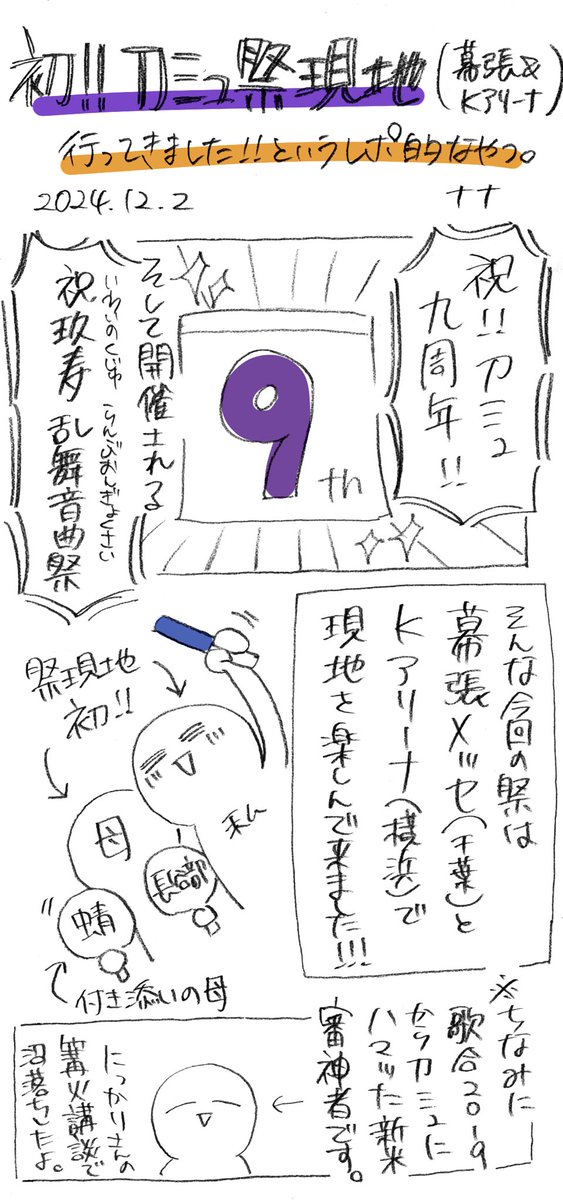 初!!刀ミュ祭現地(幕張&Kアリーナ)
行ってきました!!というレポ的なやつ。
2024.12.2
ナナ
祝!!刀ミュ
九周年!!
9th
そして開催される
祝玖寿 乱舞音曲祭
いわいのくじゅ らんぶおんぎょくさい
そんな今回の祭は
幕張メッセ(千葉)と
Kアリーナ(横浜)で
現地を楽しんで来ました!!!
祭現地
初!!
私
母
長曽部
蜻
付き添いの母
※ちなみに
歌合2019
から刀ミュに
ハマった新米
審神者です。
にっかりさんの
篝火講談で
沼落ちしたよ。